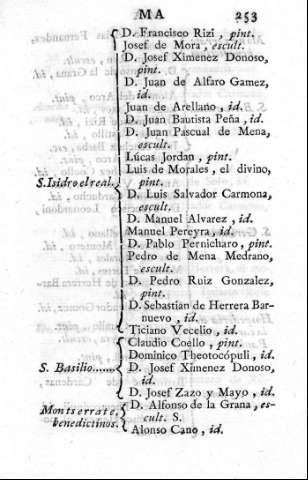 MA 253
D. Francisco Rizi, pint.
Josef de Mora, escult.
D. Josef Ximenez Donoso,
pint.
D. Juan de Alfaro Gamez,
id.
Juan de Arellano, id.
D. Juan Bautista Peña, id.
D. Juan Pascual de Mena,
escult.
Lúcas Jordan, pint.
Luis de Morales, el divino,
S. Isidro el real. pint.
D. Luis Salvador Carmona,
escult.
D. Manuel Alvarez, id.
Manuel Pereyra, id.
D. Pablo Pernicharo, pint.
Pedro de Mena Medrano,
escult.
D. Pedro Ruiz Gonzalez,
pint.
D. Sebastian de Herrera Bar-
nuevo, id.
Ticiano Vecelio, id.
Claudio Coello, pint.
Dominico Theotocópuli, id.
S. Basilio...... D. Josef Ximenez Donoso,
id.
D. Josef Zazo y Mayo, id.
Montserrate, D. Alfonso de la Grana, es-
benedictinos. cult. S.
Alonso Cano, id.